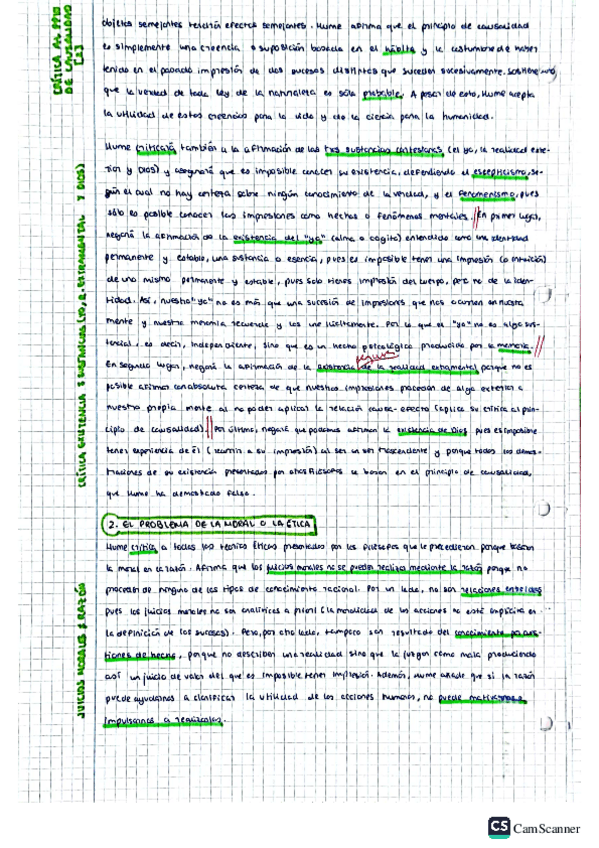 CRÍTICA AL PPIO DE CAUSALIDAD [2]
objetos semejantes tendrán efectos semejantes. Hume afirma que el principio de causalidad
es simplemente una creencia o suposición basada en el hábito y la costumbre de haber
tenido en el pasado impresión de dos sucesos distintos que suceden sucesivamente. Sostiene
que la verdad de toda ley de la naturaleza es sólo probable. A pesar de esto, Hume acepta
la utilidad de estas creencias para la vida y de la ciencia para la humanidad.
CRÍTICA EXISTENCIA 3 SUSTANCIAS (YO, R. EXTRAMENTAL Y DIOS)
Hume criticará también la afirmación de las tres sustancias cartesianas (el yo, la realidad exte-
rior y Dios) y asegurará que es imposible conocer su existencia, defendiendo el escepticismo, se-
gún el cual no hay certeza sobre ningún conocimiento de la verdad, y el fenomenismo, pues
sólo es posible conocer las impresiones como hechos o fenómenos mentales. En primer lugar,
negará la afirmación de la existencia del "yo" (alma o cogito) entendido como una identidad
permanente y estable, una sustancia o esencia, pues es imposible tener una impresión (o intuición)
de uno mismo permanente y estable, pues solo tienes impresión del cuerpo, pero no de la iden-
tidad. Así, nuestro "yo" no es más que una sucesión de impresiones que nos ocurren en nuestra
mente y nuestra memoria recuerda y las une ilícitamente. Por lo que el "yo" no es algo sus-
tancial, es decir, independiente, sino que es un hecho psicológico producido por la memoria.
En segundo lugar, negará la afirmación de la existencia de la realidad extramental porque no es
posible afirmar con absoluta certeza de que nuestras impresiones procedan de algo exterior a
nuestra propia mente al no poder aplicar la relación causa-efecto (aplica su crítica al prin-
cipio de causalidad). Por último, negará que podamos afirmar la existencia de Dios pues es imposible
tener experiencia de Él (recurrir a su impresión) al ser un ser trascendente y porque todas las demos-
traciones de su existencia presentadas por otros filósofos se basan en el principio de causalidad,
que Hume ha demostrado falso.
2. EL PROBLEMA DE LA MORAL O LA ÉTICA
JUICIOS MORALES ≠ RAZÓN
Hume critica a todas las teorías éticas presentadas por los filósofos que le precedieron porque basaban
la moral en la razón. Afirma que los juicios morales no se pueden realizar mediante la razón porque no
proceden de ninguno de los tipos de conocimiento racional. Por un lado, no son relaciones entre ideas
pues los juicios morales no son analíticos a priori (la moralidad de las acciones no está implícita en
la definición de los sucesos). Pero, por otro lado, tampoco son resultado del conocimiento por cues-
tiones de hecho, porque no describen una realidad sino que la juzgan como mala produciendo
así un juicio de valor del que es imposible tener impresión. Además, Hume añade que si la razón
puede ayudarnos a clarificar la utilidad de las acciones humanas, no puede motivarnos e
impulsarnos a realizarlas.
CS CamScanner